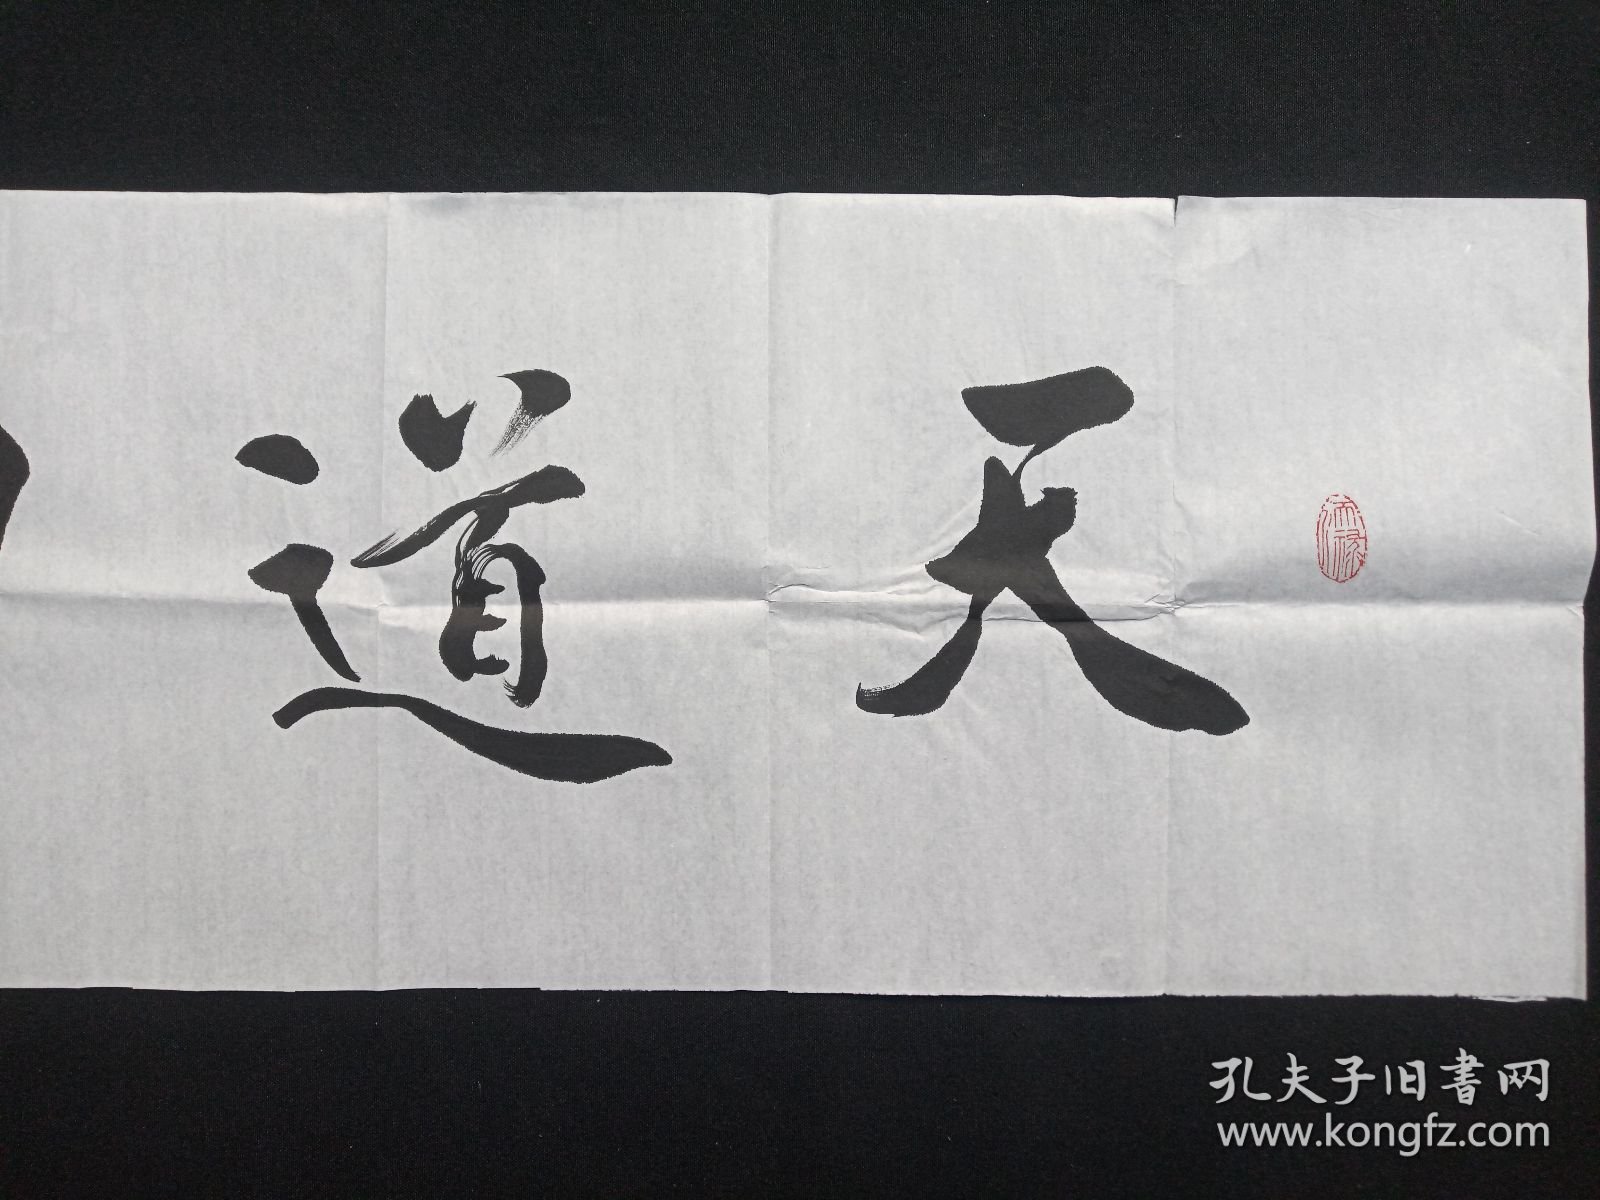 天道
孔夫子旧书网
www.kongfz.com